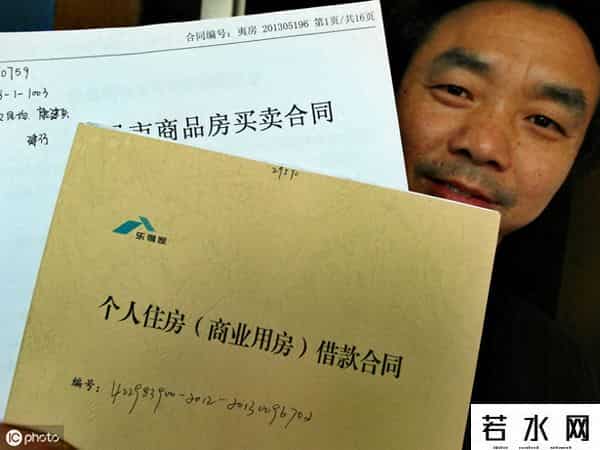 合同编号: 夷房 201305196 第1页/共16页
0759
-1-1003
市商品房买卖合同
2959c
个人住房（商业用房）借款合同
编号: 422983900-2012-20130096702
iC photo
若水网